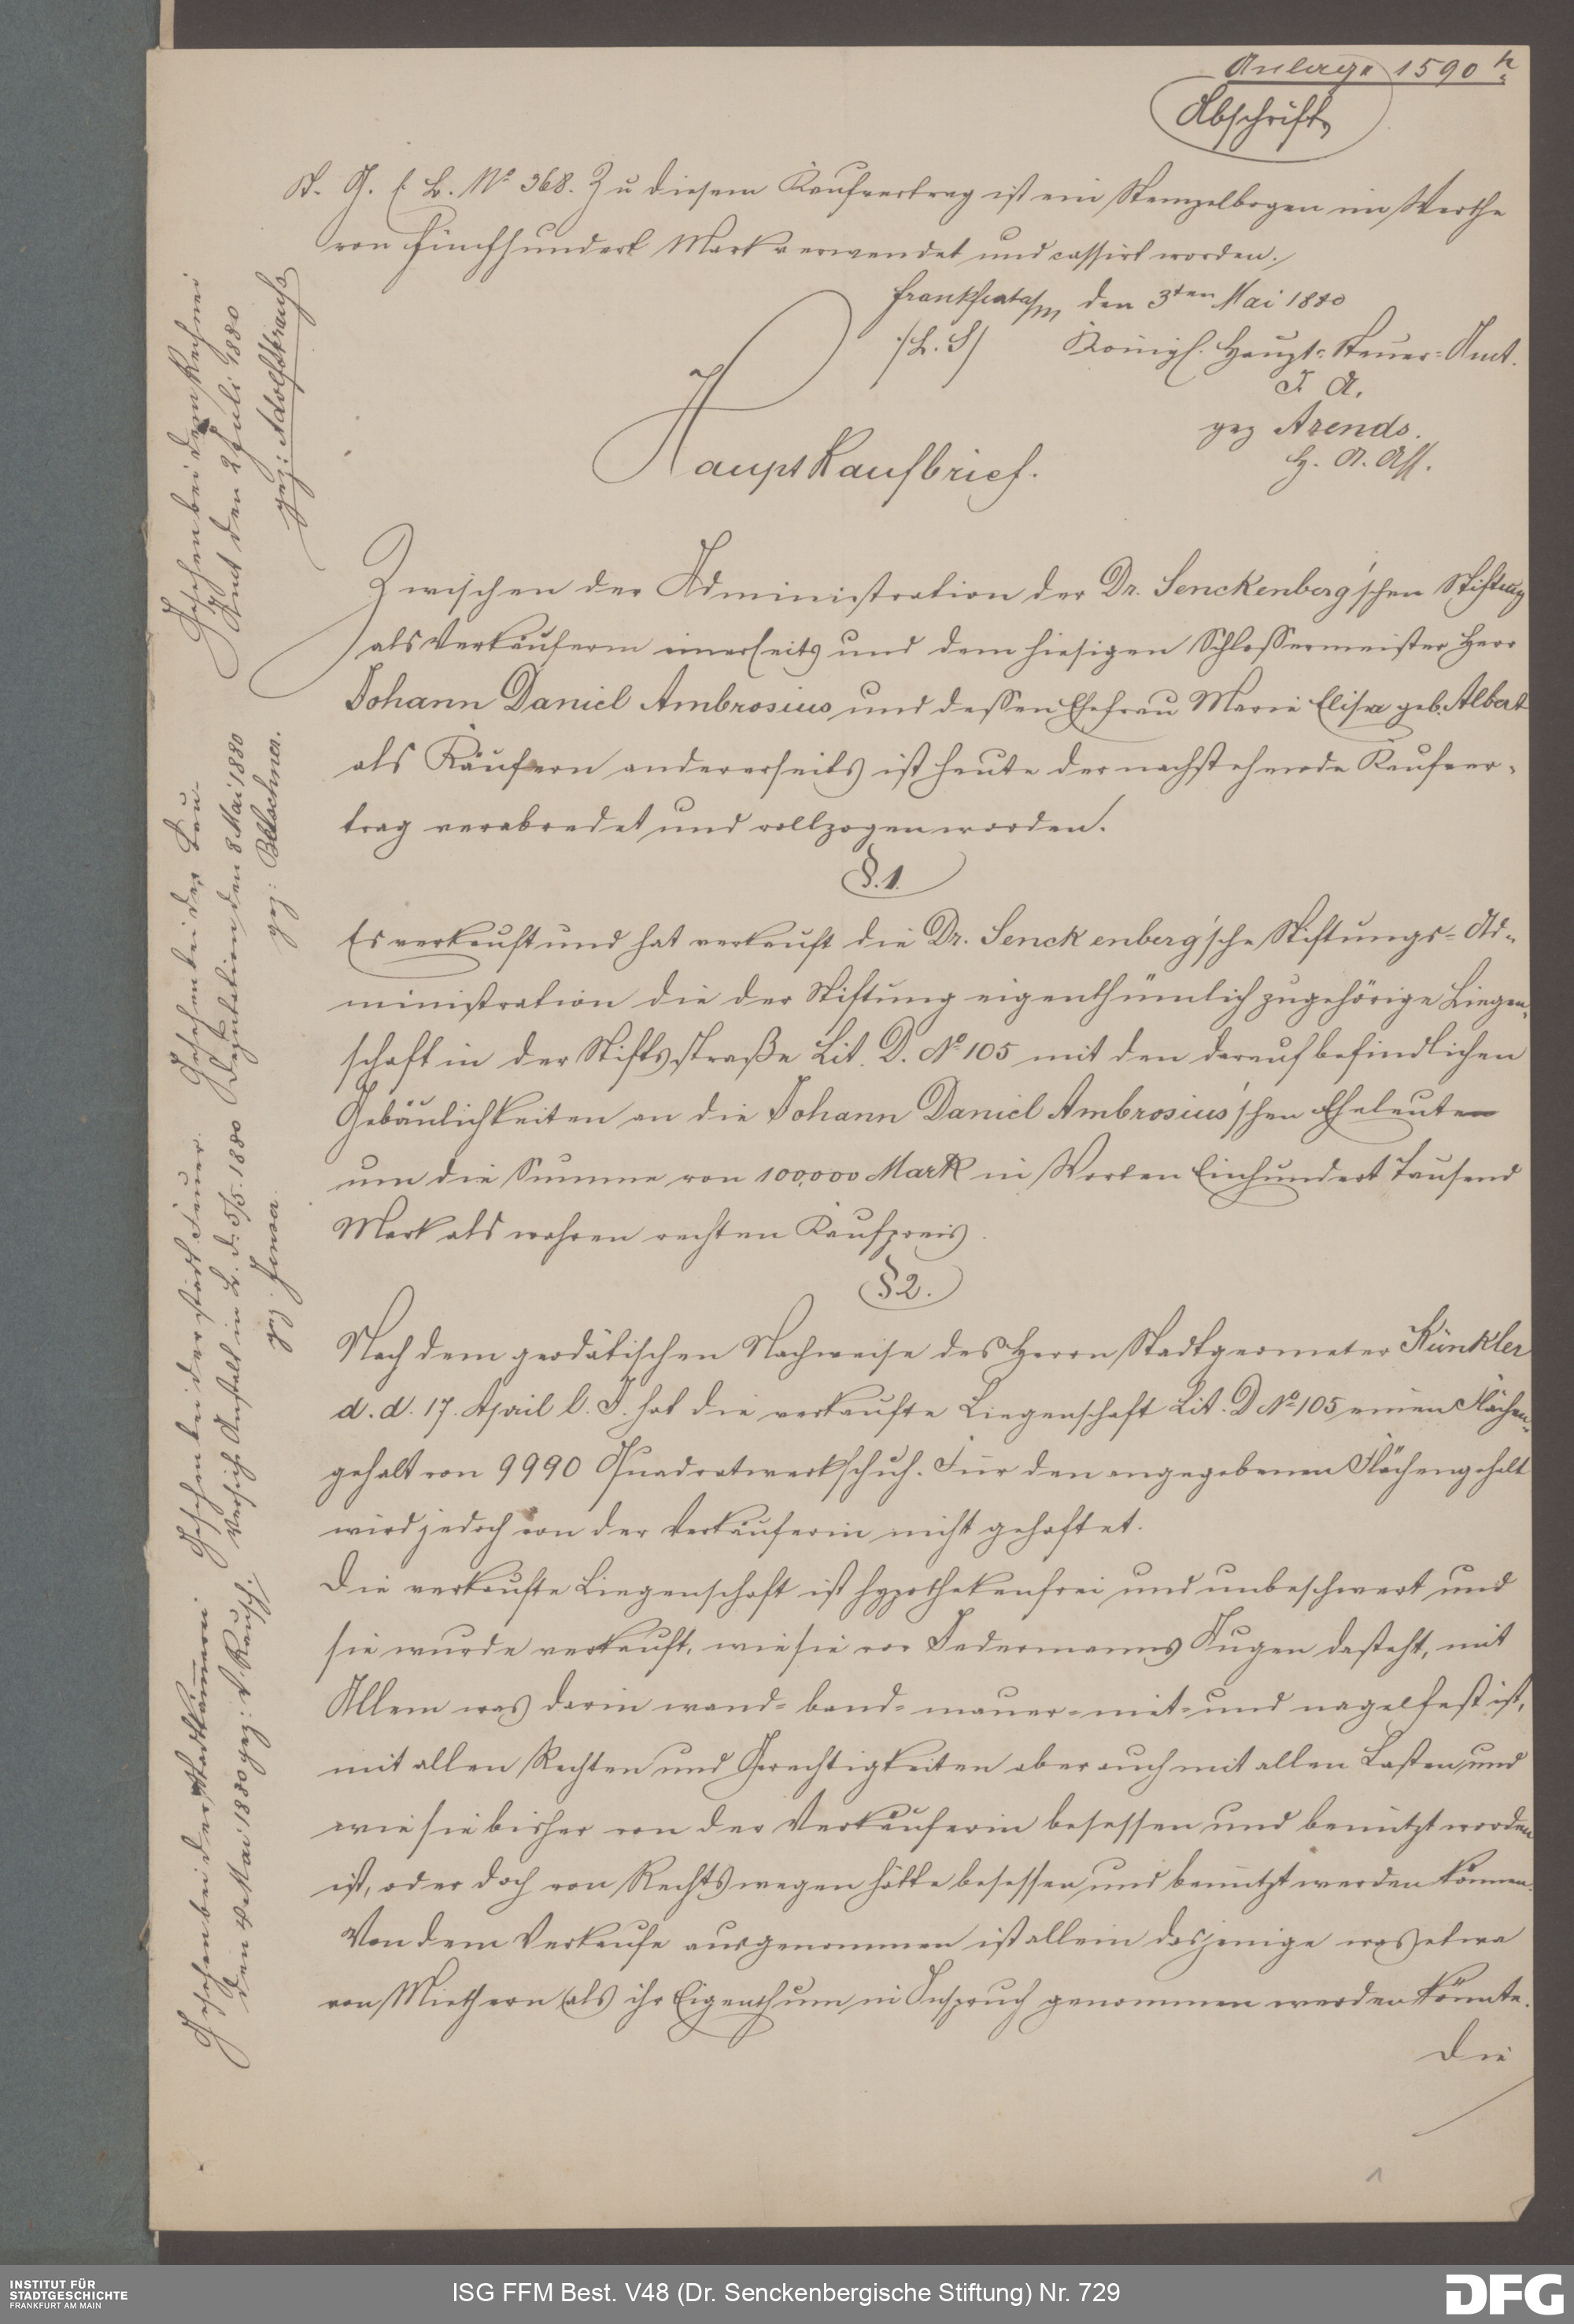 Anlage 1590 h
Abschrift
St. G. C. B. No 368. Zu diesem Kaufvertrag ist ein Stempelbogen im Werthe
von fünfhundert Mark verwendet und cassirt worden.
Frankfurt a/m, den 3ten Mai 1880
/L. S/ Königl. Haupt-Steuer-Amt.
I. A.
gez Arends.
H. A. Ass.
Hauptkaufbrief.
Zwischen der Administration der Dr. Senckenberg'schen Stiftung
als Verkäuferin einerseits und dem hiesigen Schlossermeister Herr
Johann Daniel Ambrosius und dessen Ehefrau Marie Elisa geb. Albert
als Käufern andererseits ist heute der nachstehende Kaufver-
trag verabredet und vollzogen worden.
§. 1.
Es verkauft und hat verkauft die Dr. Senckenberg'sche Stiftungs-Ad-
ministration die der Stiftung eigenthümlich zugehörige Liegen-
schaft in der Stiftsstraße Lit. D. No 105 mit den darauf befindlichen
Gebäulichkeiten an die Johann Daniel Ambrosius'schen Eheleuten
um die Summe von 100,000 Mark in Worten Einhundert Tausend
Mark als wahren rechten Kaufpreis.
§ 2.
Nach dem geodätischen Nachweise des Herrn Stadtgeometer Künkler
d. d. 17. April l. J. hat die verkaufte Liegenschaft Lit. D No 105 einen Flächen-
gehalt von 9990 Quadratwerkschuh. Für den angegebenen Flächengehalt
wird jedoch von der Verkäuferin nicht gehaftet.
Die verkaufte Liegenschaft ist hypothekenfrei und unbeschwert und
sie wurde verkauft, wie sie vor Jedermanns Augen dasteht, mit
Allem was darin wand- band- mauer- niet- und nagelfest ist,
mit allen Rechten und Gerechtigkeiten aber auch mit allen Lasten und
wie sie bisher von der Verkäuferin besessen und benützt worden
ist, oder doch von Rechtswegen hätte besessen und benützt werden können.
Von dem Verkaufe ausgenommen ist allein dasjenige was etwa
von Miethern als ihr Eigenthum in Anspruch genommen werden könnte.
Die
1
Gesehen bei der Stadtkämmerei
den 4. Mai 1880 gez: V. Rausch.
Gesehen bei der städt. Feuer
Versich. Anstalt in L. d. 5/5. 1880
gez.
Gesehen bei der Bau-
Deputation, den 8 Mai 1880
gez:
Gesehen bei dem Rechnei
Amt den 2 Juli 1880
gez: Adolf Strauß
INSTITUT FÜR
STADTGESCHICHTE
FRANKFURT AM MAIN
ISG FFM Best. V48 (Dr. Senckenbergische Stiftung) Nr. 729
DFG